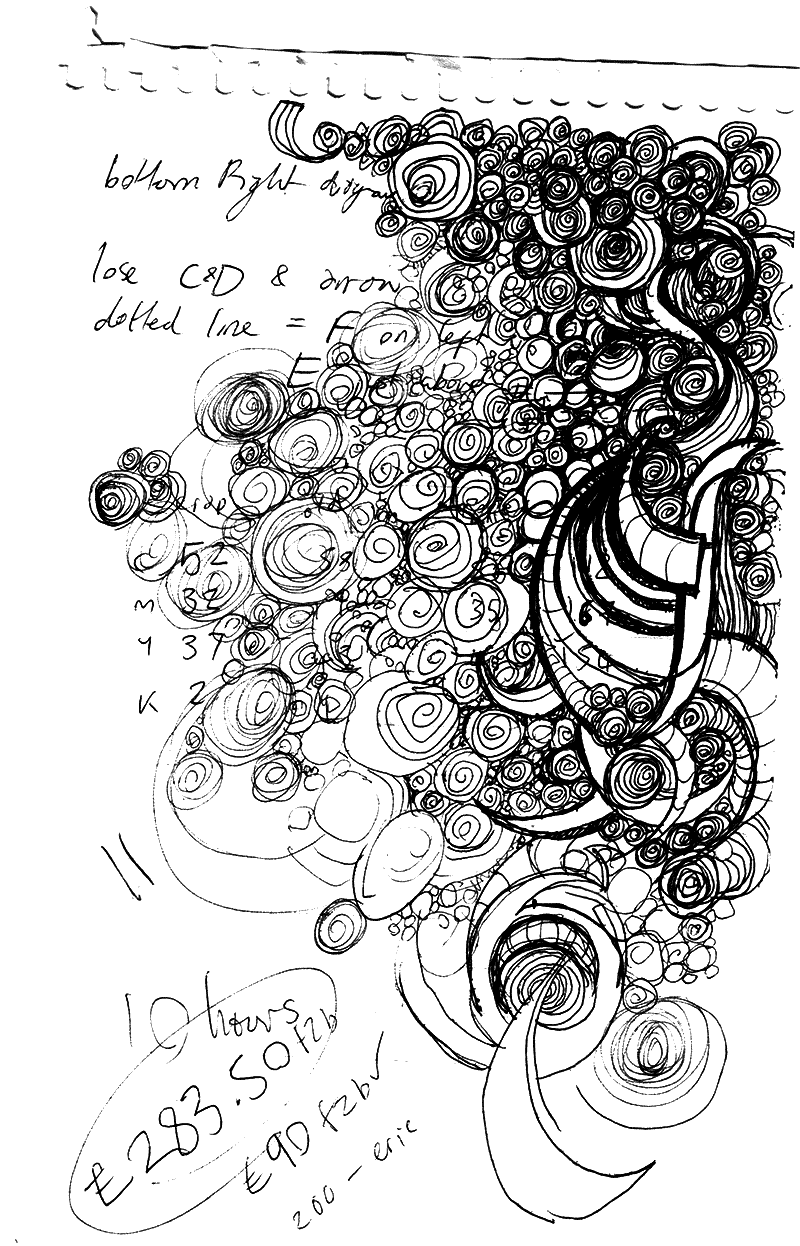 bottom Right diagram
lose C&D & arrow
dotted line = F on left
E
52
M 32
Y 37
K 2
35
10 hours
£283.50 fzb
£90 fzbv
200 - eric